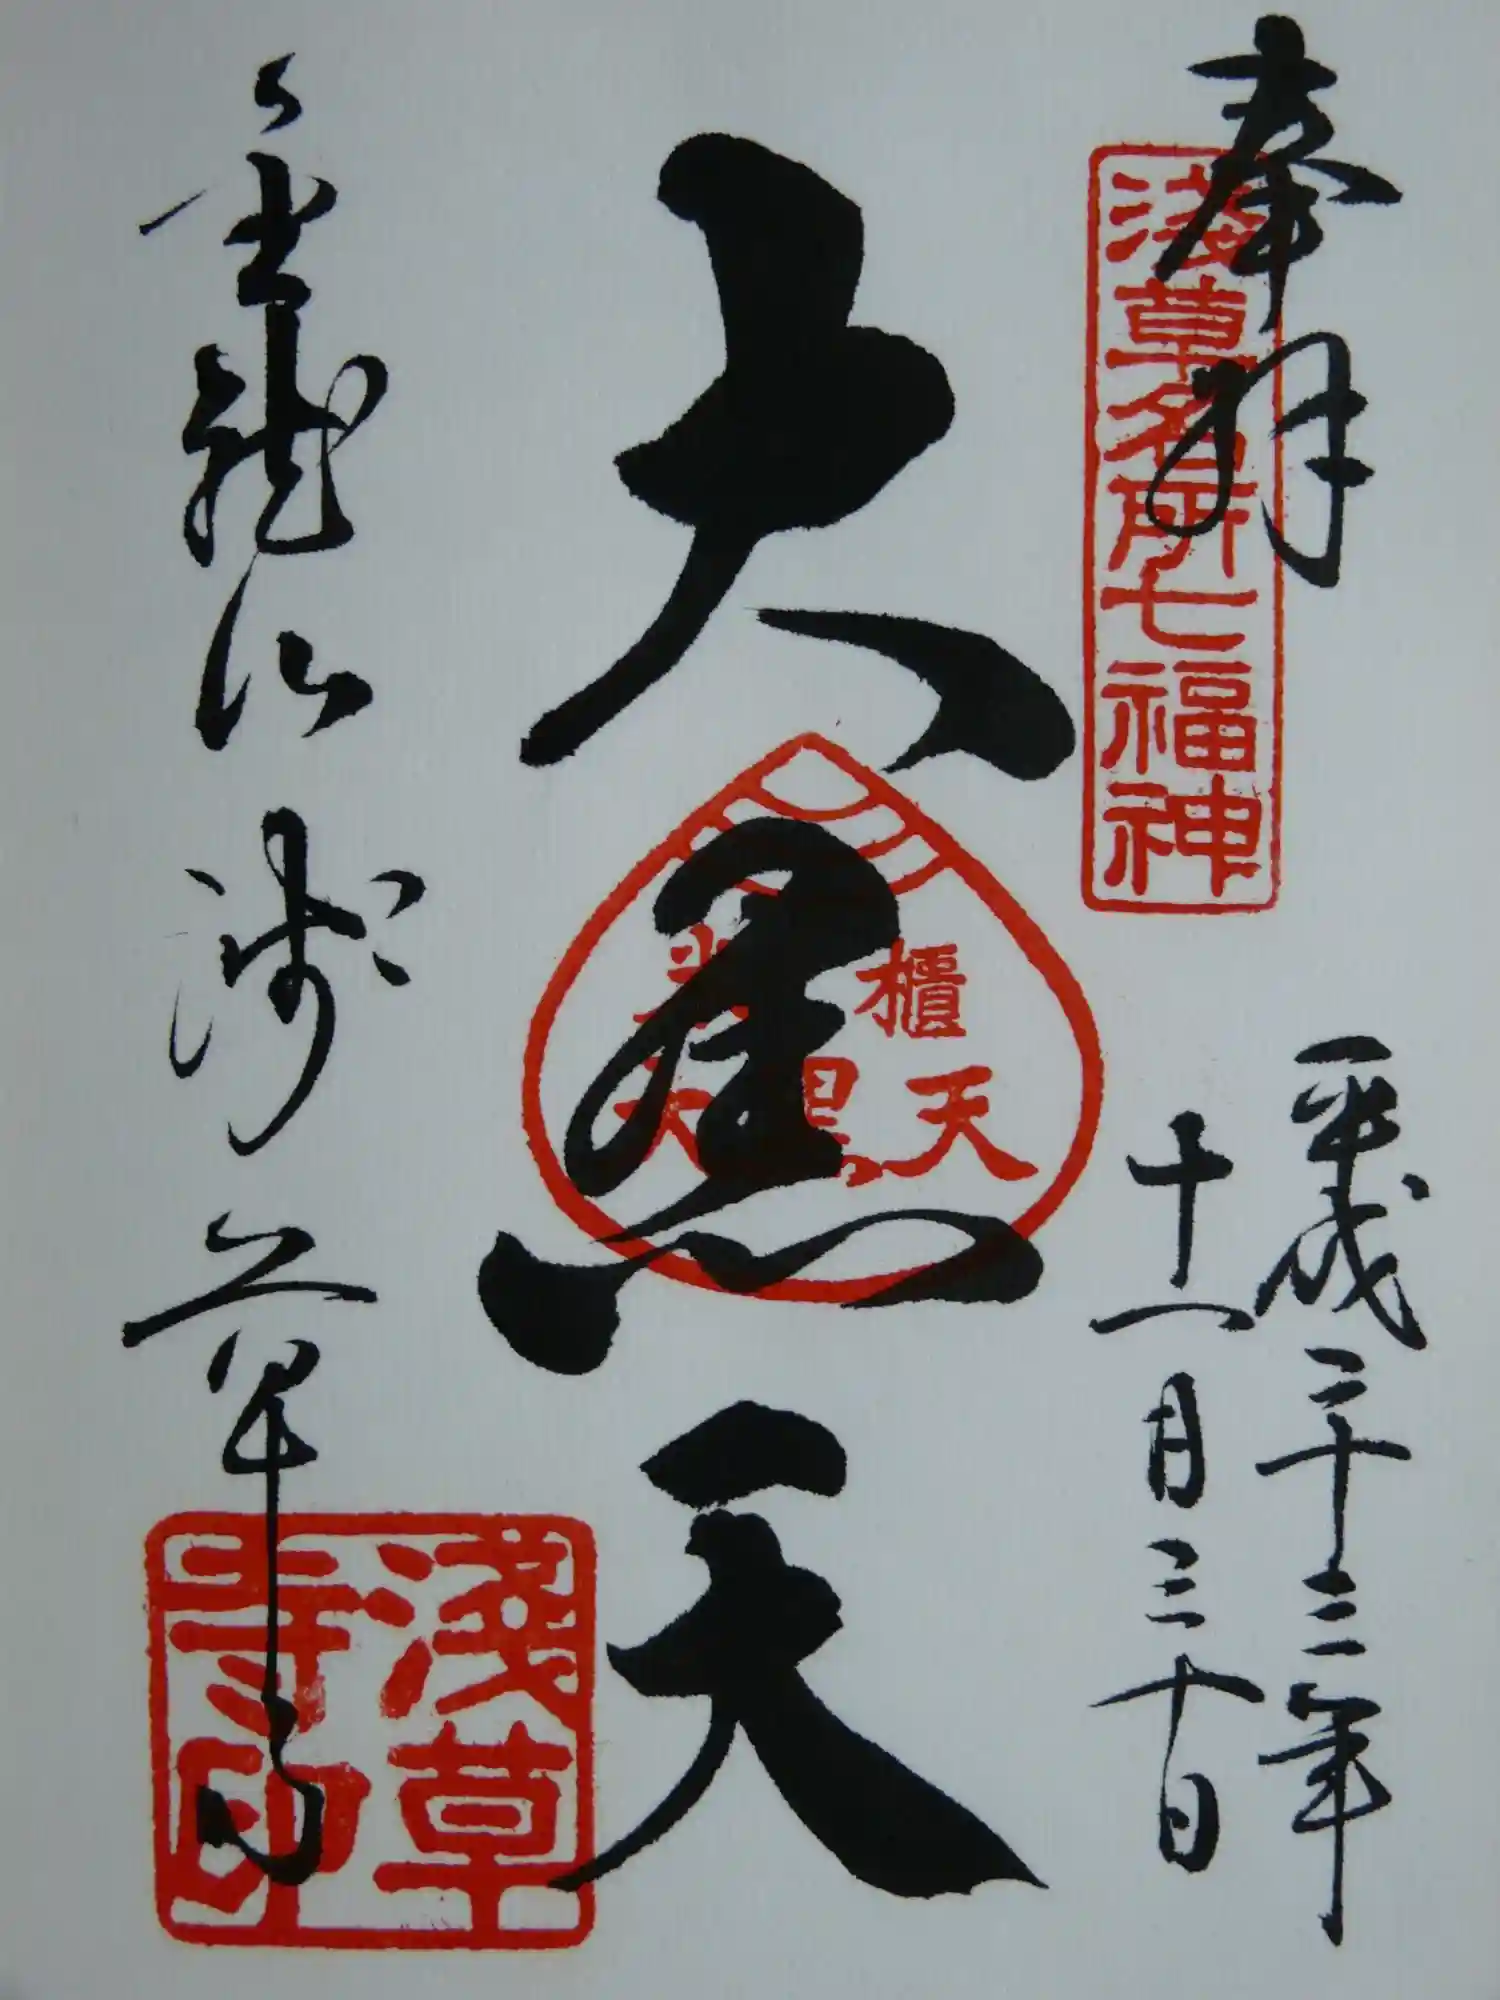 奉拝
浅草名所七福神
平成二十三年
十一月三十日
大黒天
櫃
天
金龍山
浅草寺
浅草
寺印